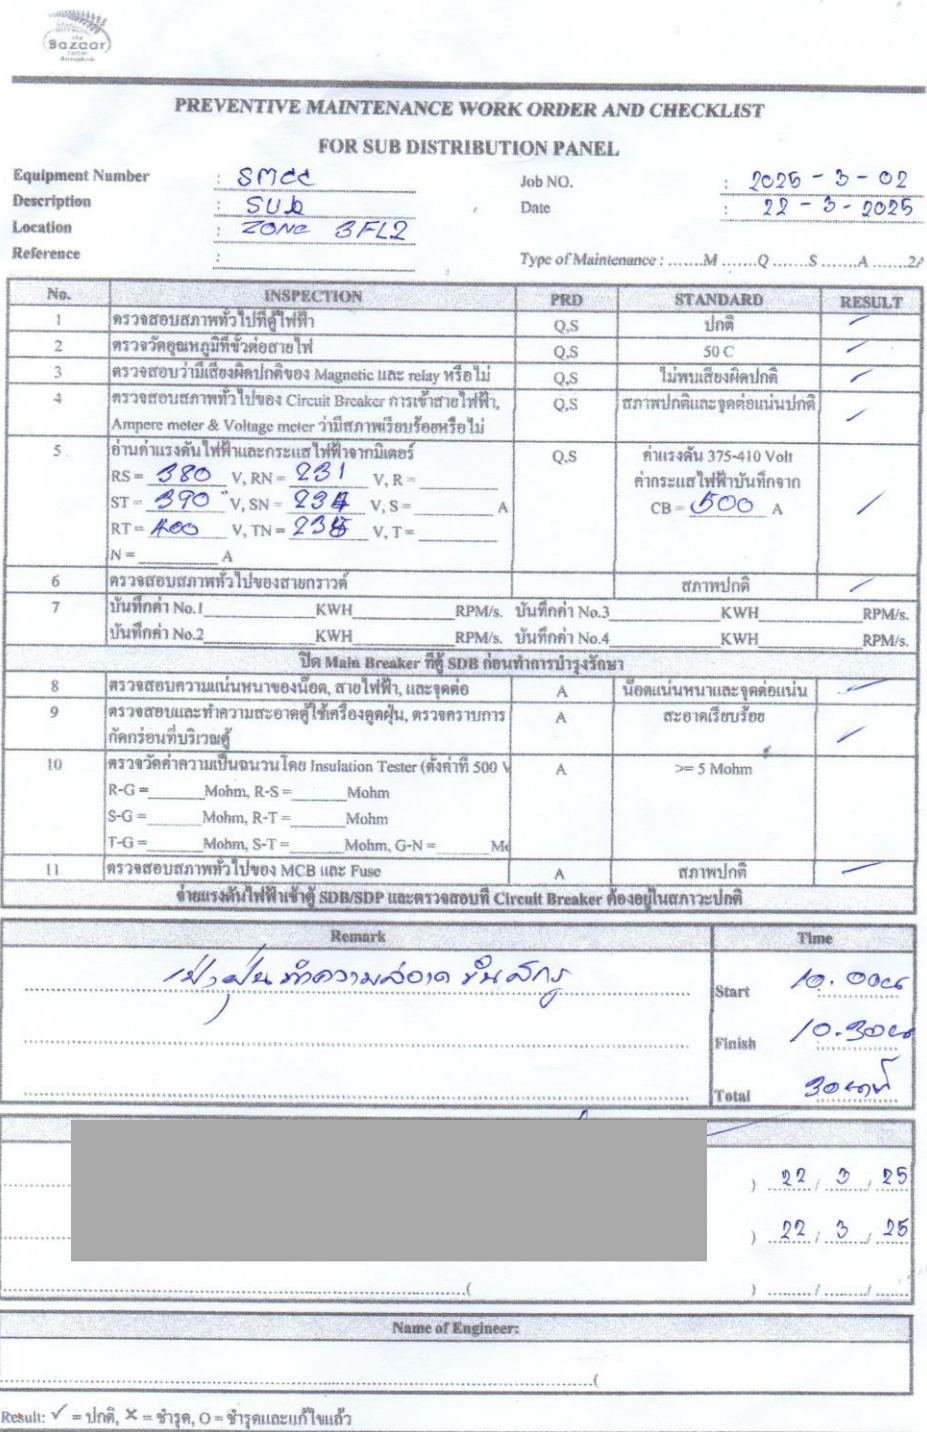 the
Bazaar
PREVENTIVE MAINTENANCE WORK ORDER AND CHECKLIST
FOR SUB DISTRIBUTION PANEL
Equipment Number : SMCC Job NO. : 2025 - 3 - 02
Description : SUb Date : 22 - 3 - 2025
Location : ZONE 3FL2
Reference : Type of Maintenance : .......M .......Q .......S .......A .......2
No. INSPECTION PRD STANDARD RESULT
1 ตรวจสอบสภาพทั่วไปที่ตู้ไฟฟ้า Q,S ปกติ /
2 ตรวจวัดอุณหภูมิที่ขั้วต่อสายไฟ Q,S 50 C /
3 ตรวจสอบว่ามีเสียงผิดปกติของ Magnetic และ relay หรือไม่ Q,S ไม่พบเสียงผิดปกติ /
4 ตรวจสอบสภาพทั่วไปของ Circuit Breaker การเข้าสายไฟฟ้า, Q,S สภาพปกติและจุดต่อแน่นปกติ /
Ampere meter & Voltage meter ว่ามีสภาพเรียบร้อยหรือไม่
5 อ่านค่าแรงดันไฟฟ้าและกระแสไฟฟ้าจากมิเตอร์ Q,S ค่าแรงดัน 375-410 Volt
RS = 380 V, RN = 231 V, R = ________ ค่ากระแสไฟฟ้าบันทึกจาก
ST = 390 V, SN = 234 V, S = ________ A CB = 500 A /
RT = 400 V, TN = 235 V, T = ________
N = ________ A
6 ตรวจสอบสภาพทั่วไปของสายกราวด์ สภาพปกติ /
7 บันทึกค่า No.1________KWH________RPM/s. บันทึกค่า No.3________KWH________RPM/s.
บันทึกค่า No.2________KWH________RPM/s. บันทึกค่า No.4________KWH________RPM/s.
ปิด Main Breaker ที่ตู้ SDB ก่อนทำการบำรุงรักษา
8 ตรวจสอบความแน่นหนาของน๊อต, สายไฟฟ้า, และจุดต่อ A น๊อตแน่นหนาและจุดต่อแน่น /
9 ตรวจสอบและทำความสะอาดตู้ใช้เครื่องดูดฝุ่น, ตรวจคราบการ A สะอาดเรียบร้อย /
กัดกร่อนที่บริเวณตู้
10 ตรวจวัดค่าความเป็นฉนวนโดย Insulation Tester (ตั้งค่าที่ 500 V A >= 5 Mohm
R-G =______Mohm, R-S =______Mohm
S-G =______Mohm, R-T =______Mohm
T-G =______Mohm, S-T =______Mohm, G-N =______
11 ตรวจสอบสภาพทั่วไปของ MCB และ Fuse A สภาพปกติ /
จ่ายแรงดันไฟฟ้าเข้าตู้ SDB/SDP และตรวจสอบที่ Circuit Breaker ต้องอยู่ในสภาวะปกติ
Remark Time
เป่าฝุ่น ทำความสะอาด ขันสกรู Start 10.00น
Finish 10.30น
Total 30นาที
) 22 / 3 / 25
) 22 / 3 / 25
( ) ......../......../........
Name of Engineer:
(
Result: ✓ = ปกติ, ✕ = ชำรุด, O = ชำรุดและแก้ไขแล้ว